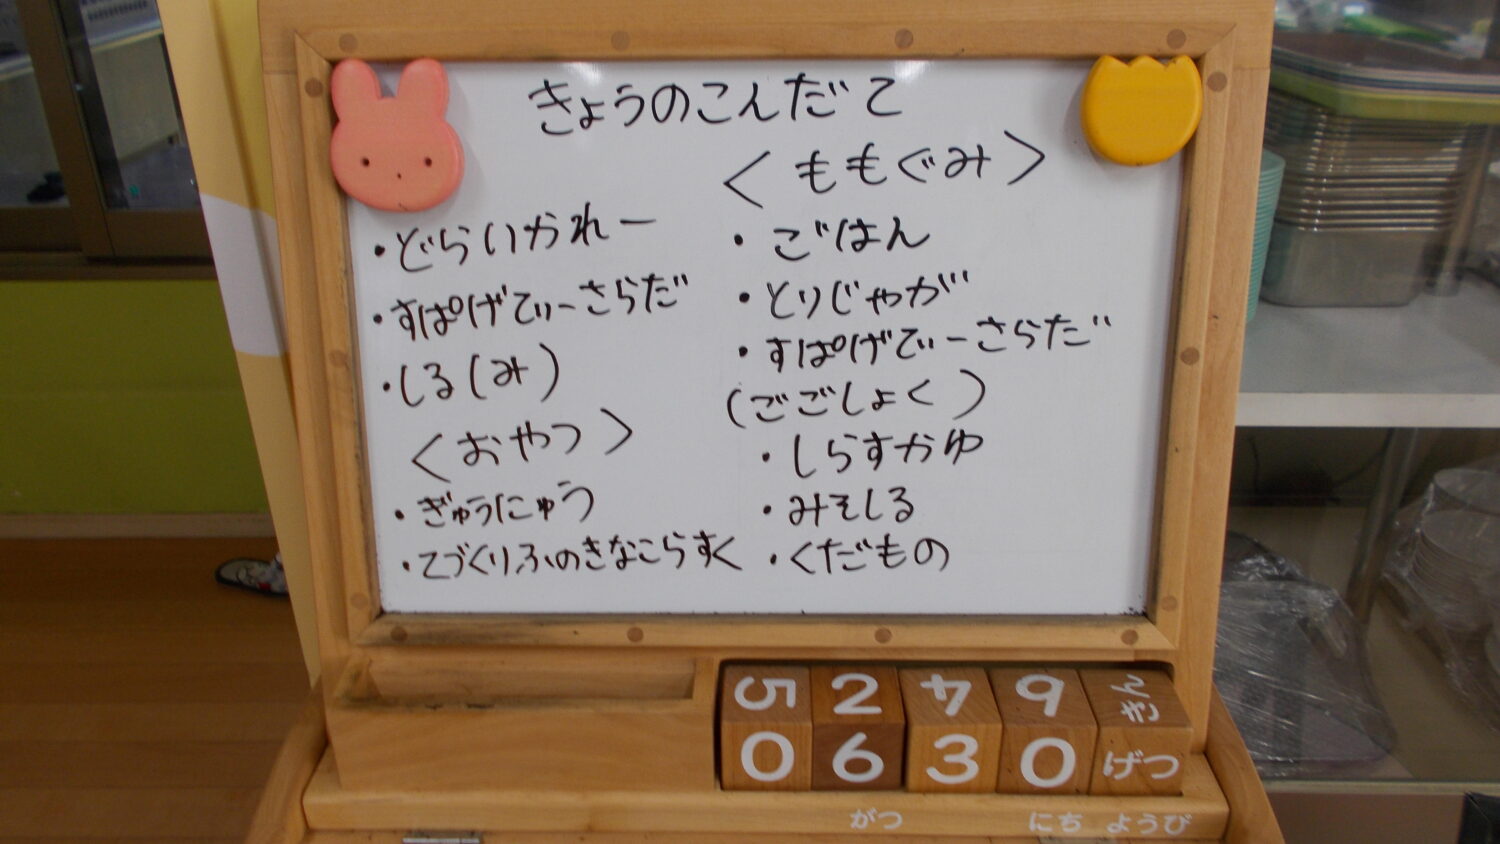 きょうのこんだて
・どらいかれー
・すぱげてぃーさらだ
・しる(み)
<おやつ>
・ぎゅうにゅう
・てづくりふのきなこらすく
<ももぐみ>
・ごはん
・とりじゃが
・すぱげてぃーさらだ
(ごごしょく)
・しらすかゆ
・みそしる
・くだもの
5 2 4 6 きん
0 6 3 0 げつ
がつ にち ようび